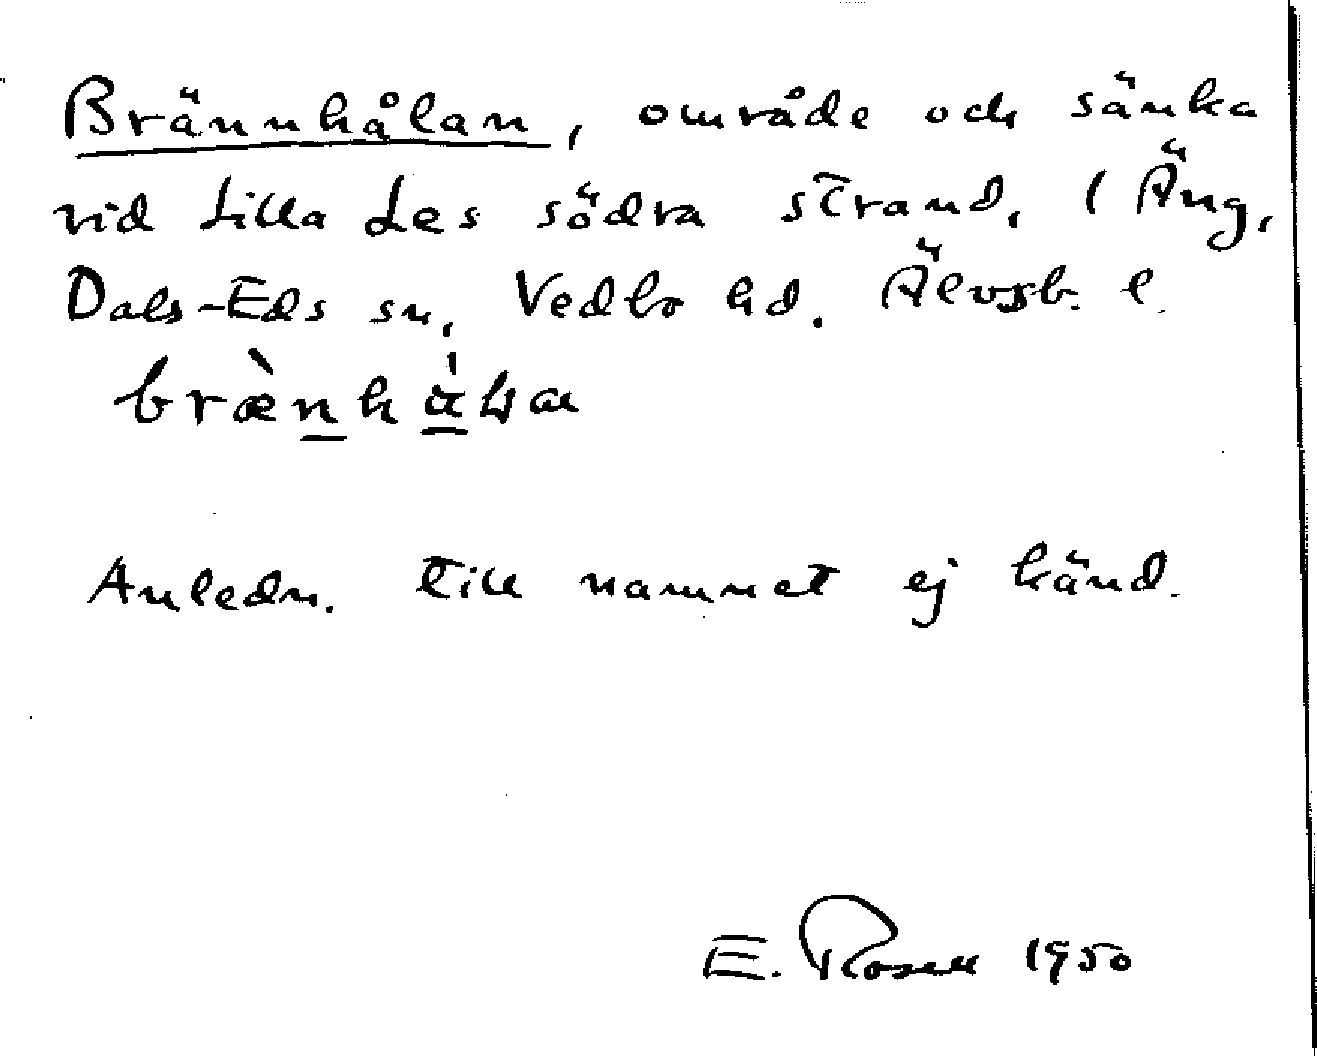 Brännhålan, område och sänka
vid Lilla Les södra strand, (Äng,
Dals-Eds sn, Vedbo hd. Älvsb. l.
Anledn. till namnet ej känd.
E. Rosell 1950